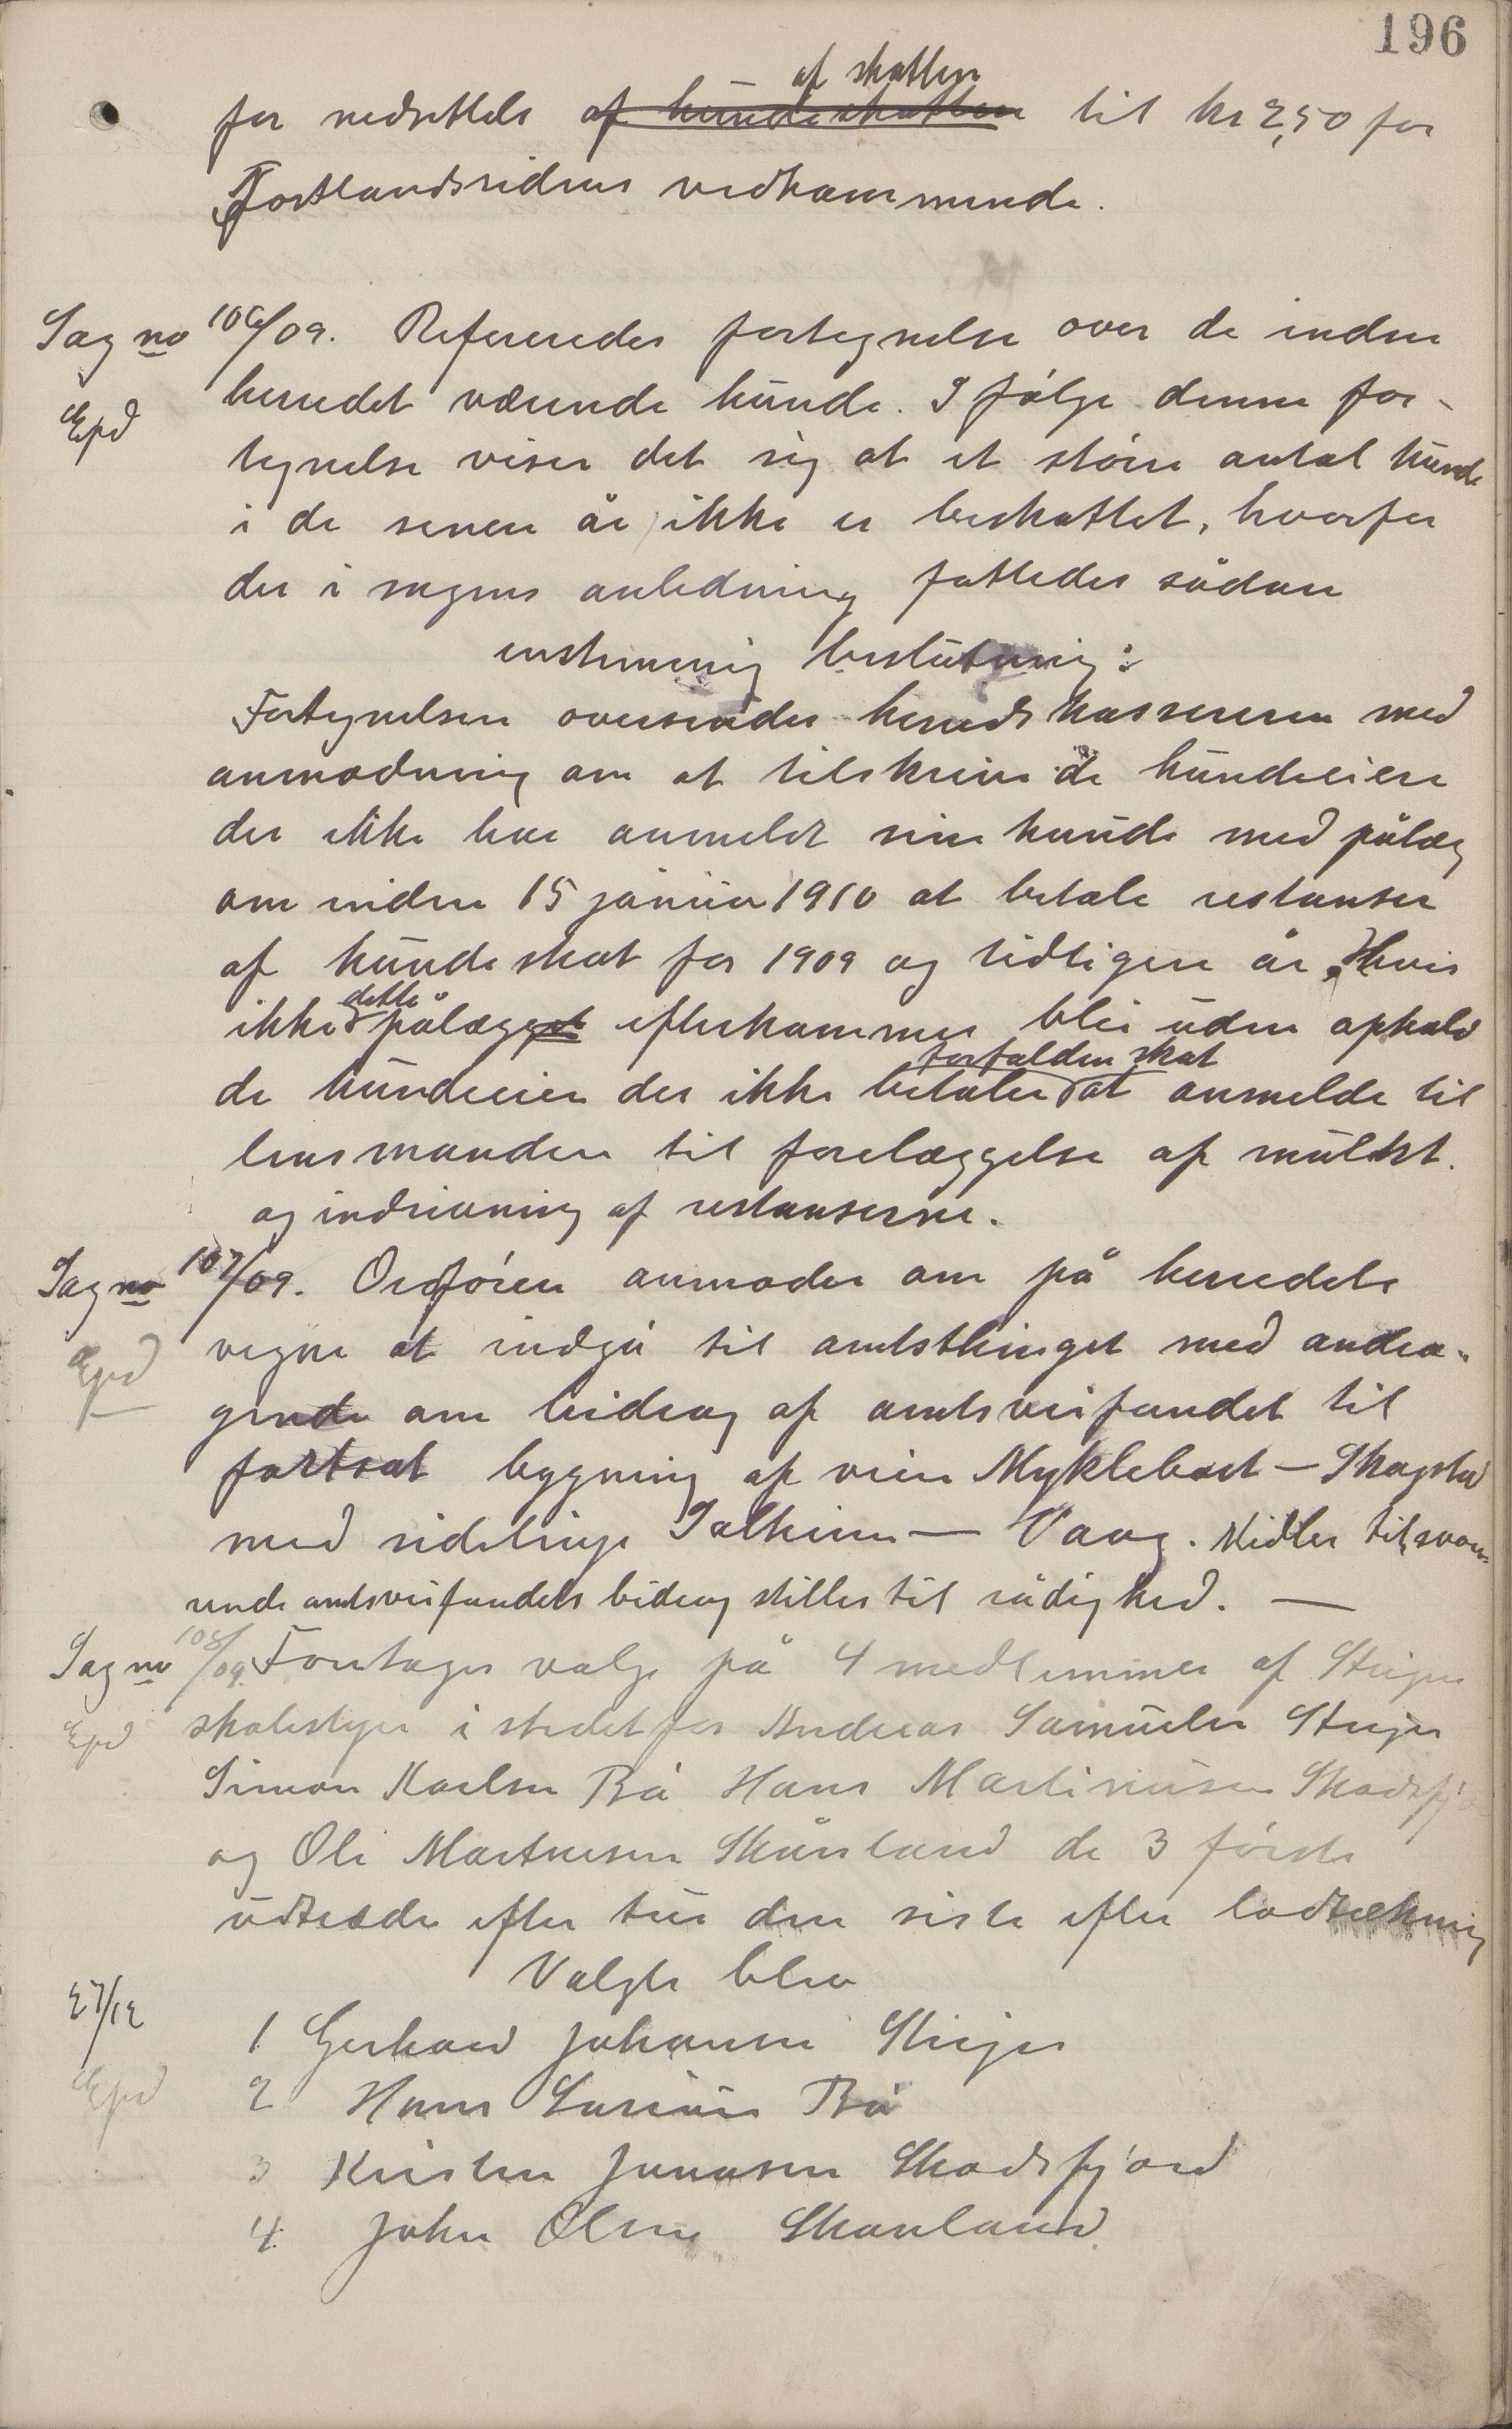 196
for nedsettels af hundeskatten af skatten til kr 2,50 for
Fastlandssidens vedkommende.
Sag no 106/09. Refereredes fortegnelse over de inden
Epd herredet værende hunde. I følge denne for-
tegnelse viser det sig at et større antal hunde
i de senere år ikke er beskattet, hvorfor
der i sagens anledning fattedes sådan
enstemmig beslutning:
Fortegnelsen oversendes herredskassereren med
anmodning om at tilskrive de hundeeiere
der ikke har anmeldt sine hunde med pålæg
om inden 15 januar 1910 at betale restanser
af hundeskat for 1909 og tidligere år. Hvis
ikke dette pålægget efterkommes blir uden ophold
de hundeeiere der ikke betaler forfalden skat at anmelde til
lensmanden til forelæggelse af mulkt.
og inddrivning af restanserne.
Sag no 107/09. Ordføren anmodes om på herredets
Epd vegne at indgå til amtsthinget med andra-
gende om bidrag af amtsveifondet til
fortsat bygning af veien Myklebost - Skagstad
med sidelinje Salheim - Vaag. Midler tilsvar-
ende amtsveifondets bidrag stilles til rådighed. -
Sag no 108/09. Foretages valg på 4 medlemmer af Steigen
Epd skolestyre i stedet for Andreas Samuelsen Steigen
Simon Karlsen Bø Hans Martinussen Skodsfjo
og Ole Martinesen Skånland de 3 første
udtrædes efter tur den siste efter lodtrækning
Valgte blev
27/12
1 Gerhard Johansen Steigen
Epd
2 Hans Larsen Bø
3 Kristen Jonassen Skodsfjord
4. John Olsen Skanland